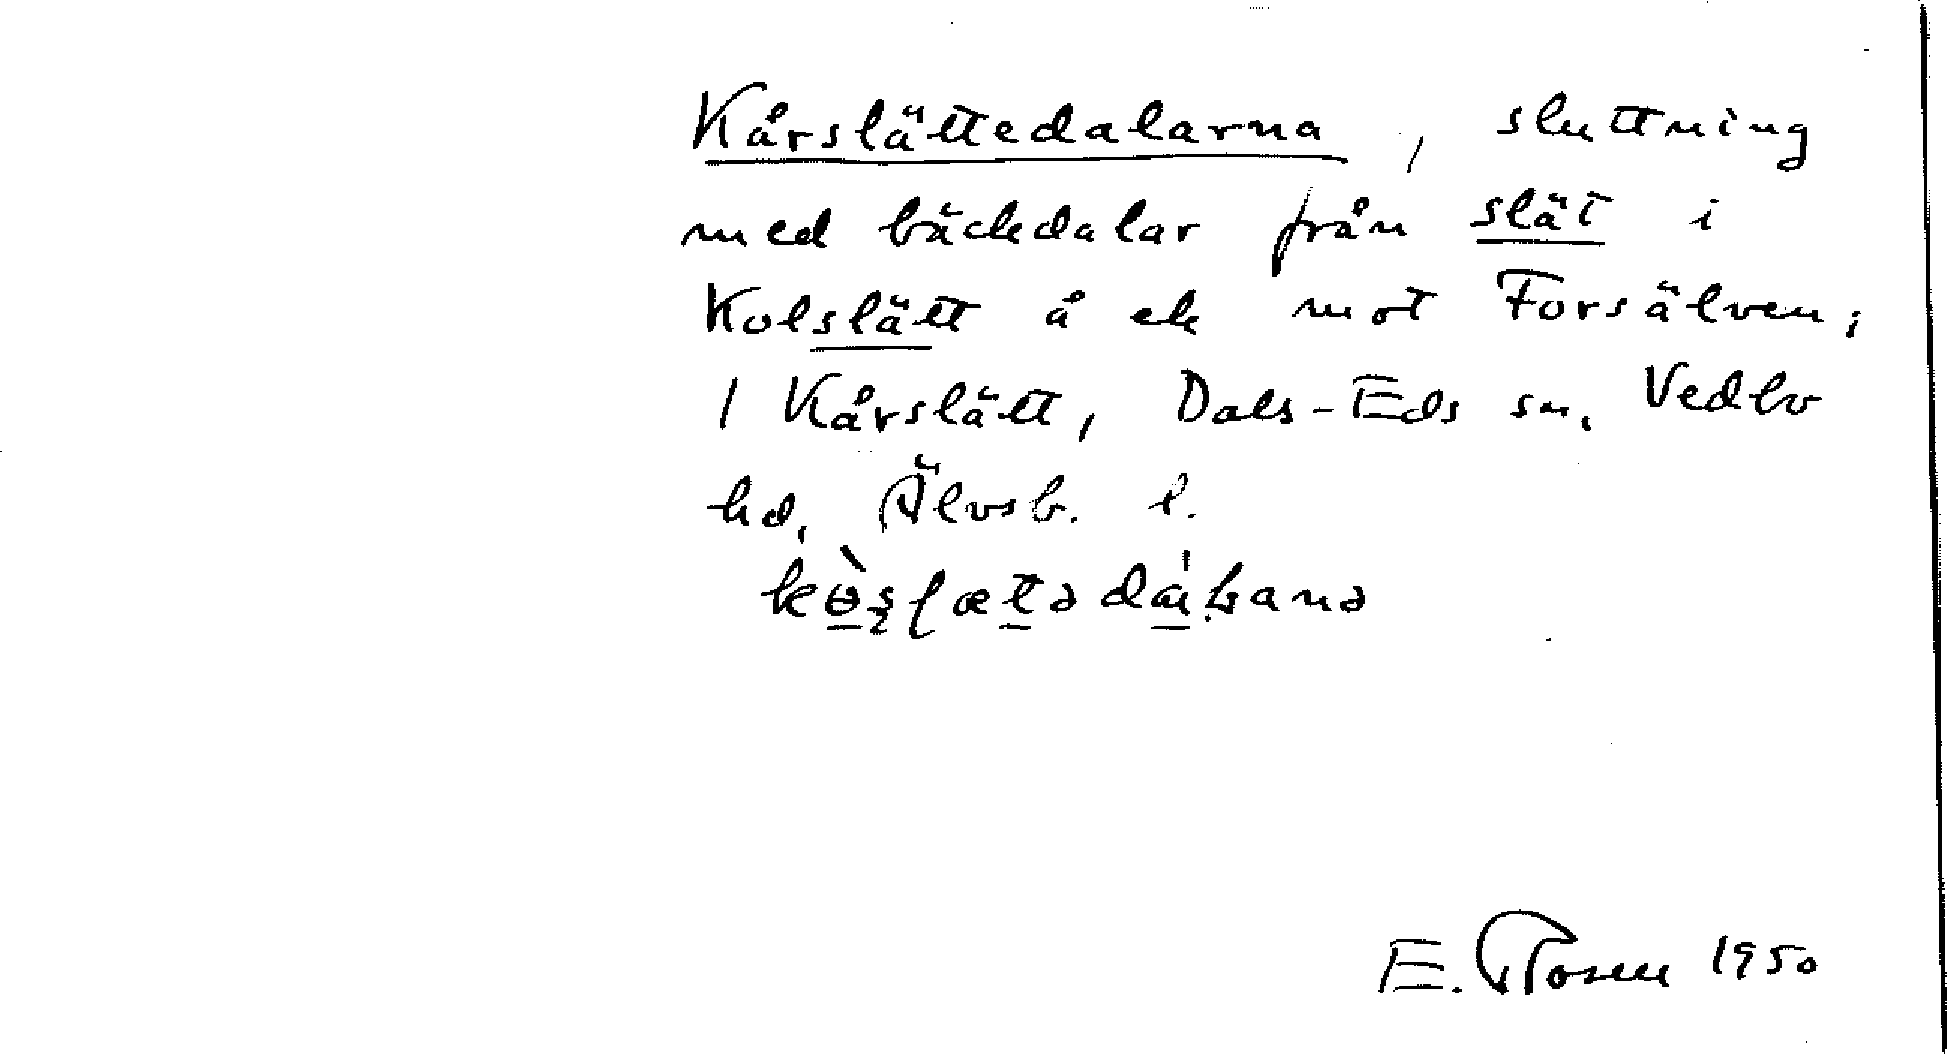 Kårslättedalarna, sluttning
med bäckdalar från slät i
Kolslätt å ek mot Forsälven;
1 Kårslätt, Dals-Eds sn, Vedbo
hd, Älvsb. l.
E. Rosen 1950